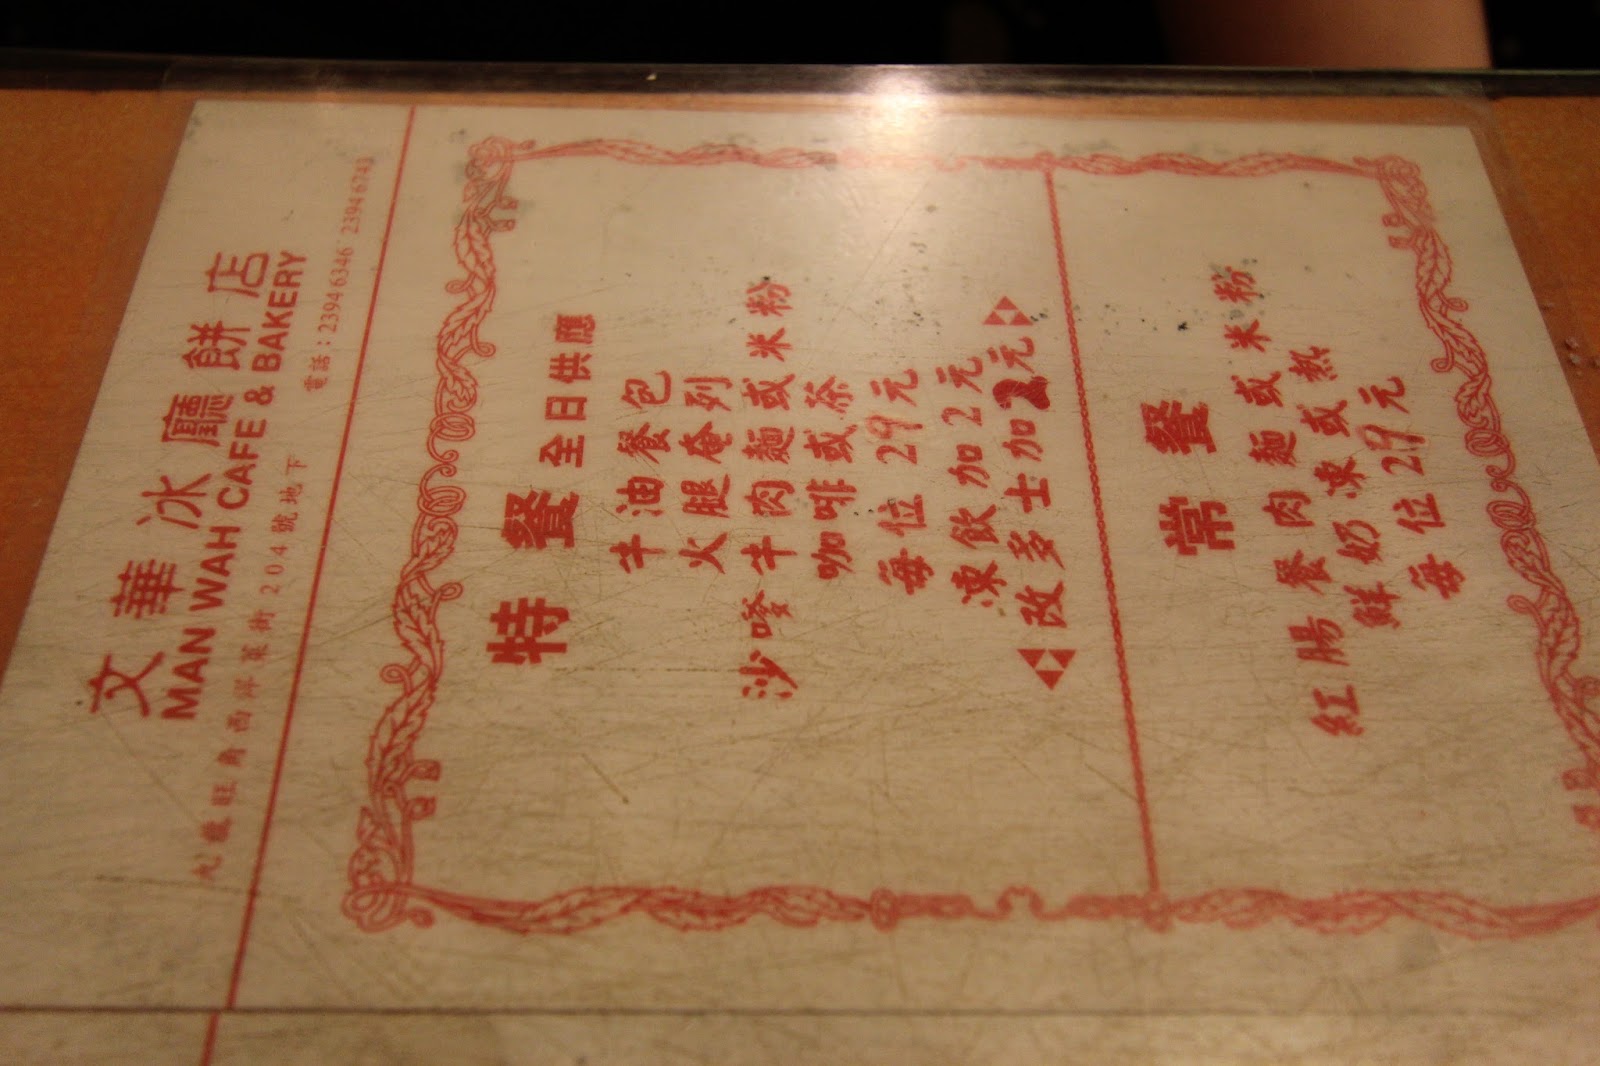 文華冰廳餅店
MAN WAH CAFE & BAKERY
九龍旺角西洋菜街204號地下
電話：2394 6346 2394 6743
特餐 全日供應
牛油餐包
火腿奄列
沙嗲牛肉麵或米粉
咖啡或茶
每位29元
凍飲加2元
改多士加2元
常餐
紅腸餐肉麵或米粉
鮮奶凍或熱
每位29元